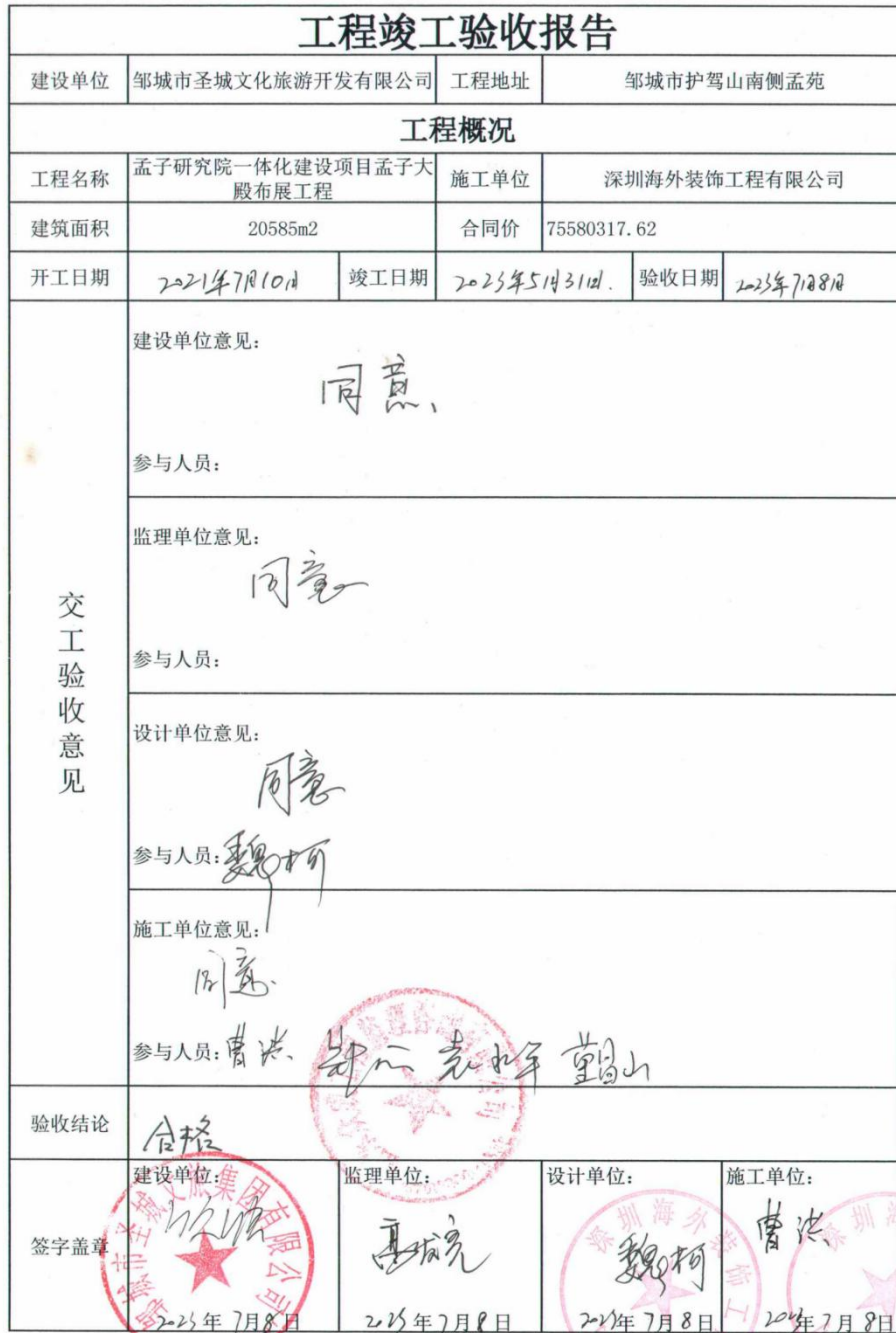 工程竣工验收报告
建设单位 邹城市圣城文化旅游开发有限公司 工程地址 邹城市护驾山南侧孟苑
工程概况
工程名称 孟子研究院一体化建设项目孟子大
殿布展工程 施工单位 深圳海外装饰工程有限公司
建筑面积 20585m2 合同价 75580317.62
开工日期 2021年7月10日 竣工日期 2023年5月31日. 验收日期 2023年7月8日
交工验收意见
建设单位意见:
同意、
参与人员:
监理单位意见:
同意
参与人员:
设计单位意见:
同意
参与人员:魏柯
施工单位意见:
同意.
参与人员:曹洪
验收结论 合格
签字盖章
建设单位: 监理单位: 设计单位: 施工单位:
邹城市圣城文旅集团有限公司
深圳海外装饰工
深圳海
魏柯 曹洪
2023年7月8日 2023年7月8日 2023年7月8日 2023年7月8日